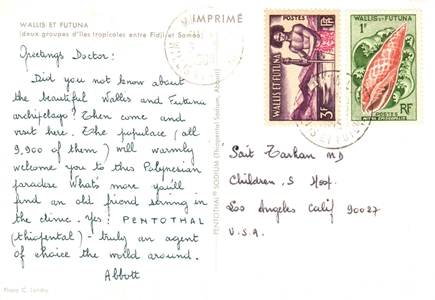 WALLIS ET FUTUNA
(deux groupes d'îles tropicales entre Fidji et Samoa)
Greetings Doctor:
Did you not know about
the beautiful Wallis and Futuna
archipelago? Then come and
visit here. The populace (all
9,900 of them) will warmly
welcome you to this Polynesian
paradise. Whats more you'll
find an old friend serving in
the clinic. Yes: PENTOTHAL
(thiopental) - truly an agent
of choice the world around.
Abbott
Photo C. Landry
IMPRIMÉ
PENTOTHAL® SODIUM (Thiopental Sodium, Abbott)
POSTES
RF
WALLIS ET FUTUNA
3F
WALLIS ET FUTUNA
1F
POSTES
RF
Sait Tarhan MD
Children,S Hosp.
Los Angeles Calif 90027
U.S.A.